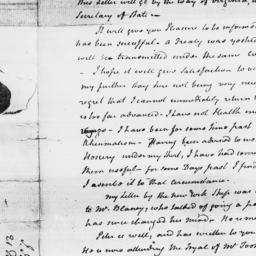 this Letter will go by the way of Virginia,
Secretary of State
It will give you Pleasure to be informed
has been successful - a Treaty was yesterday
will be transmitted under the same Co
- I hope it will give Satisfaction to
my further stay here not being very nece
regret that I cannot immediately return
is too far advanced - I have not Health eno
I have been for some time past
Rheumatism - Having been advised to
Hosiery under my Shirt, I have had some
them useful - for some Days past I find
I ascribe it to that circumstance -
My Letter by the new York Ship was
to Mr. Blaney, who talked of going a pa
has since changed his mind.
Peter is well, and has written to you
He is now attending the Tryal of Mr. Too